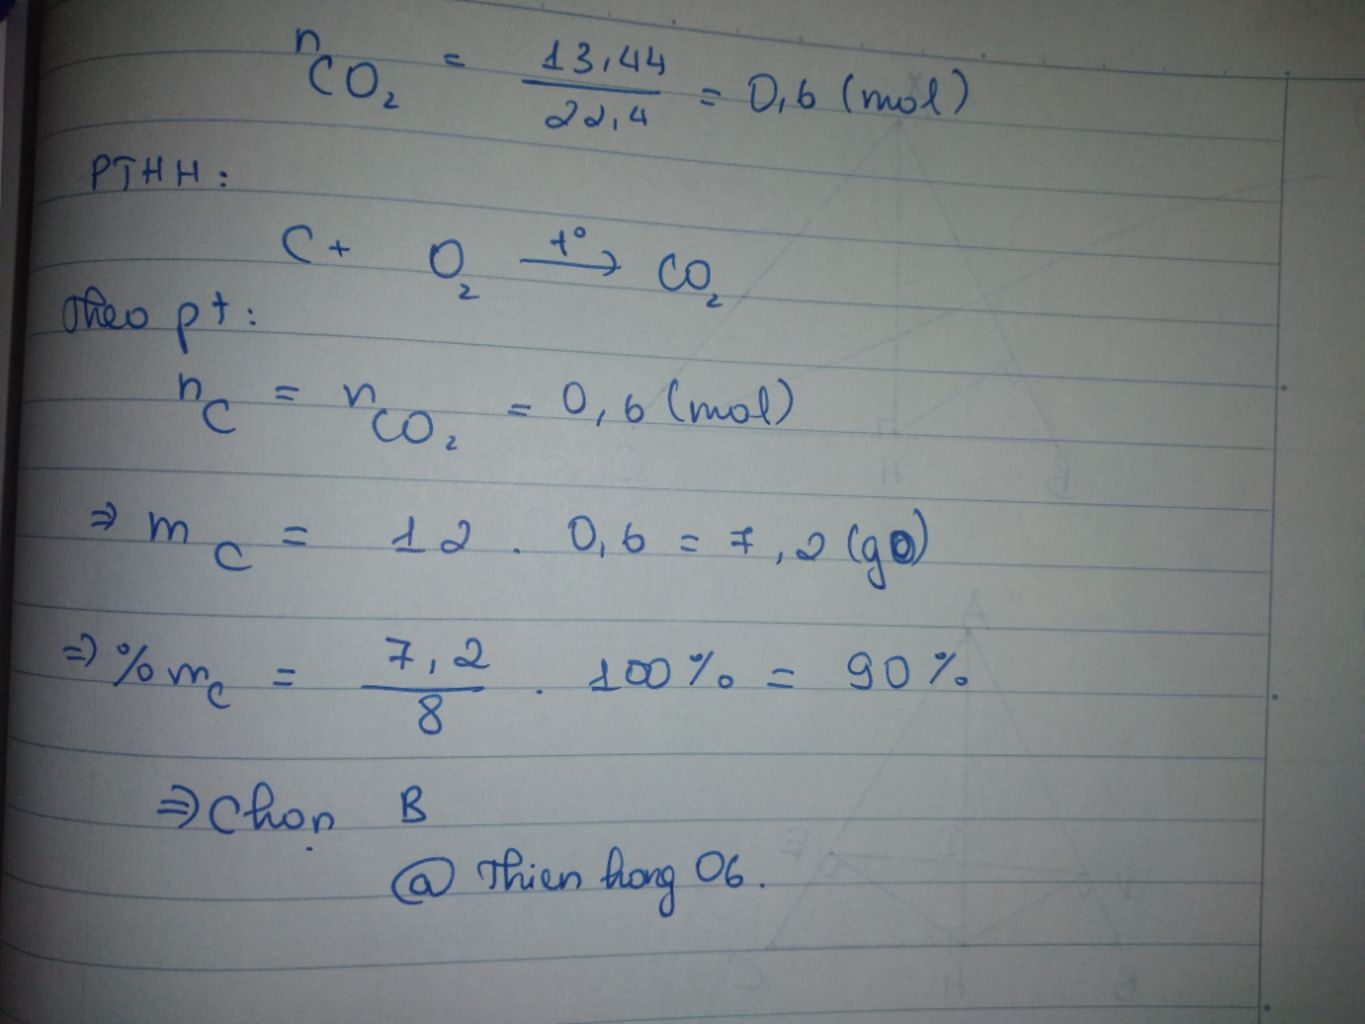 nCO₂ = 13,44 / 22,4 = 0,6 (mol)
PTHH:
C + O₂ t° → CO₂
Theo pt:
nC = nCO₂ = 0,6 (mol)
⇒ mC = 12 . 0,6 = 7,2 (g)
⇒ % mC = 7,2 / 8 . 100% = 90%
⇒ Chọn B
@ Thien hong 06.